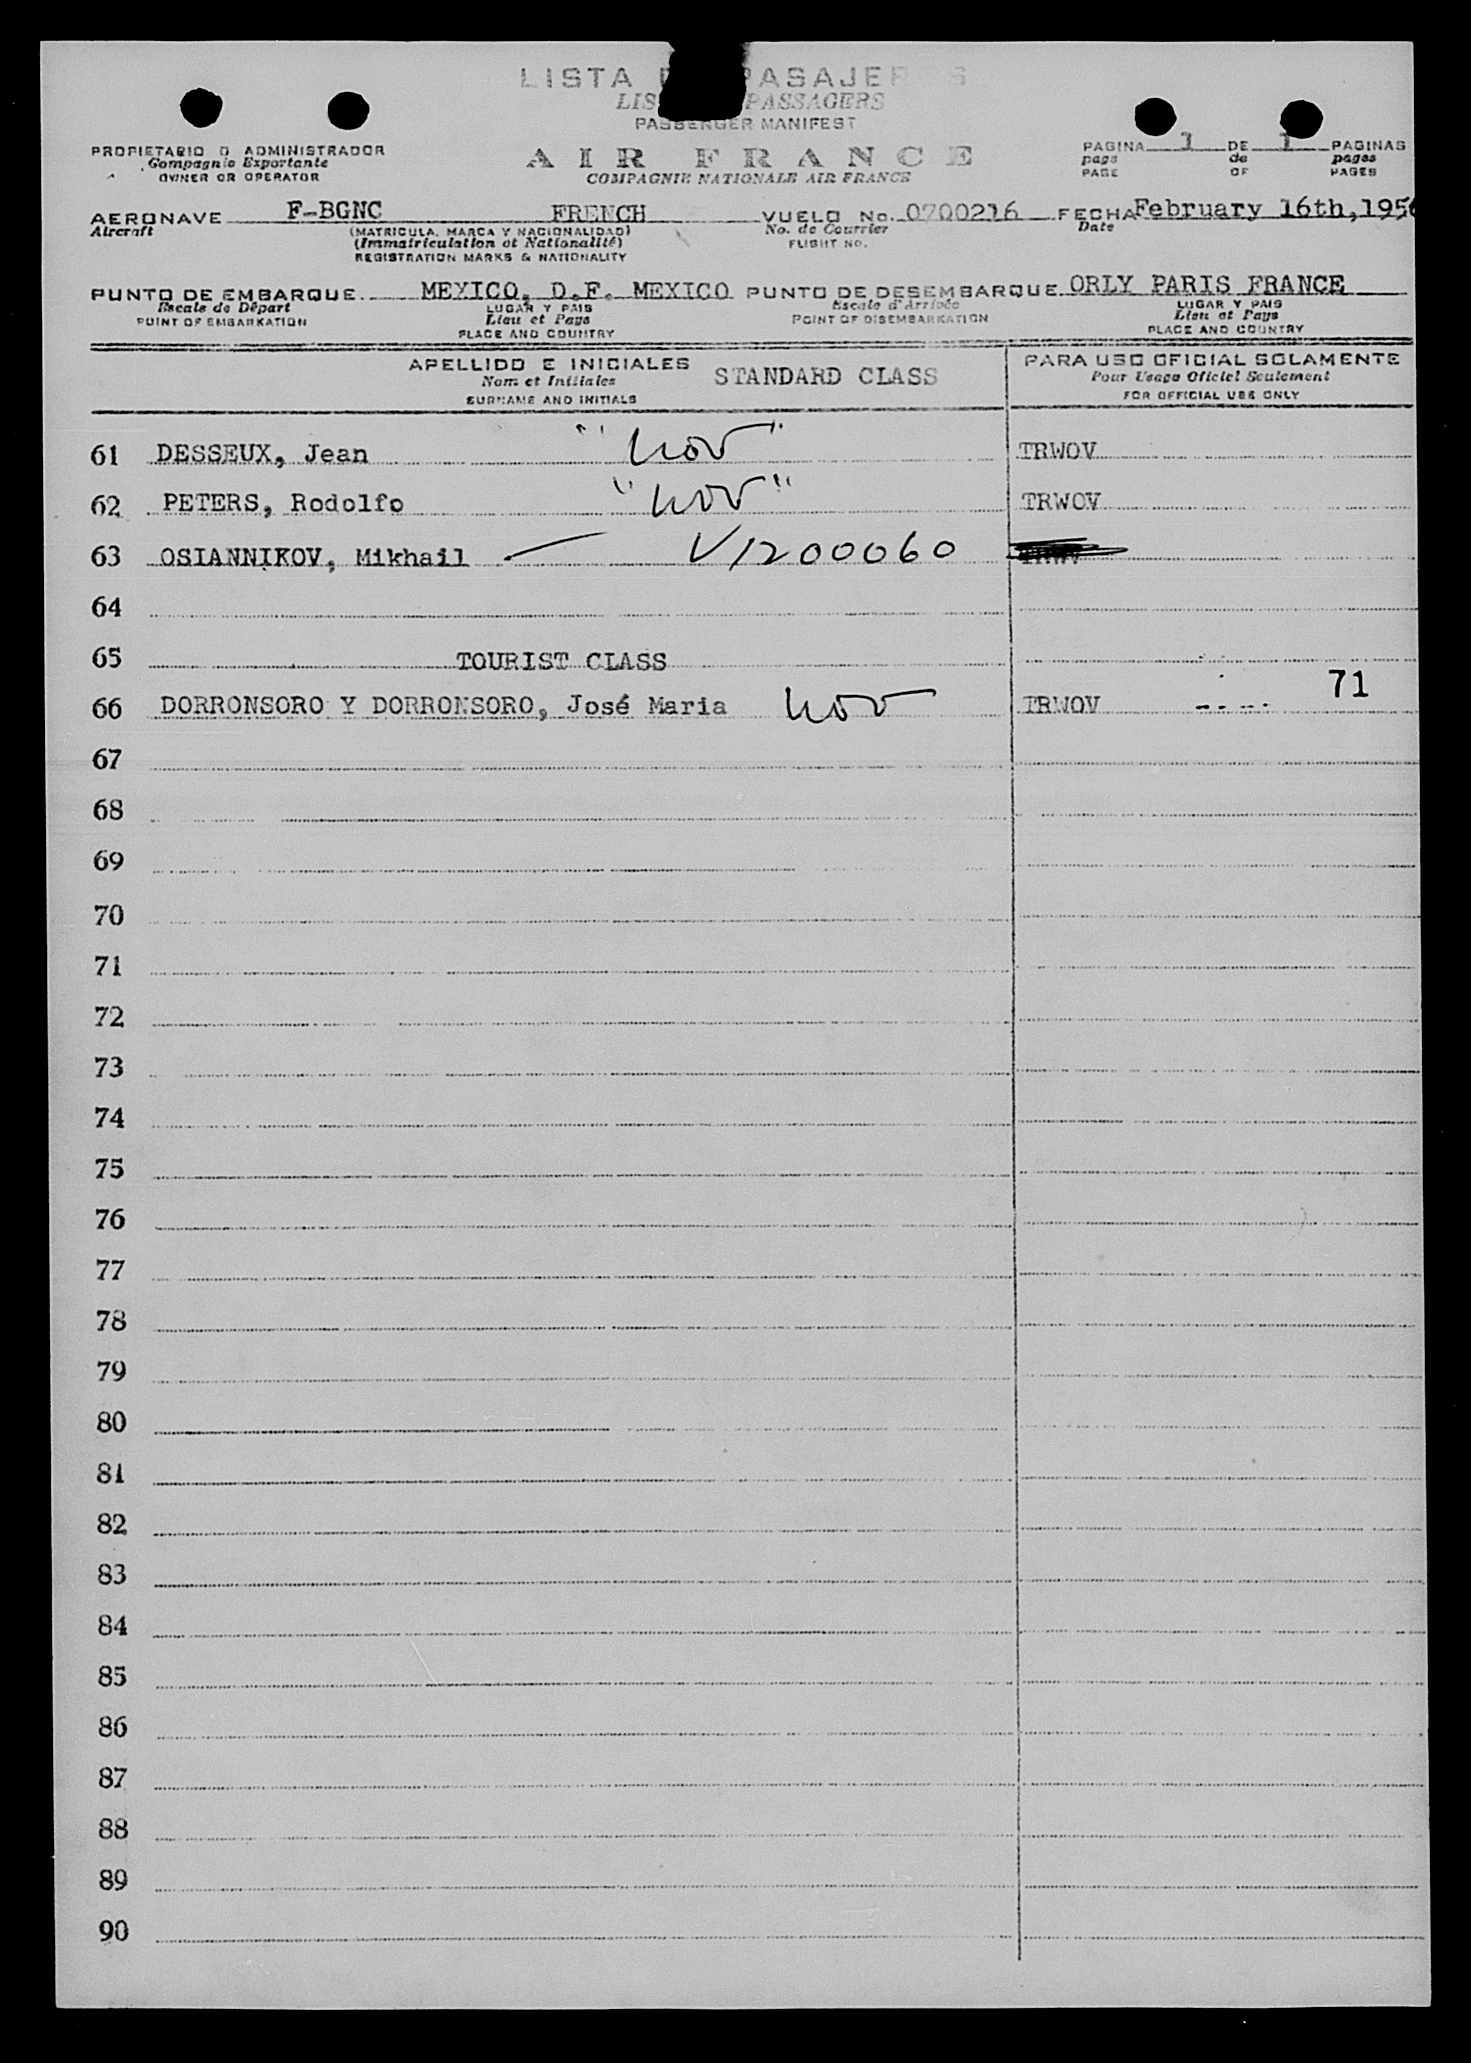 LISTA PASAJEROS
PASSAGERS
PASSENGER MANIFEST
PROPIETARIO O ADMINISTRADOR
Compagnie Exportante
OWNER OR OPERATOR
AIR FRANCE
COMPAGNIE NATIONALE AIR FRANCE
PAGINA 1 DE 1 PAGINAS
page de pages
PAGE OF PAGES
AERONAVE F-BGNC FRENCH VUELO No. 0700216 FECHA February 16th, 1956
Aircraft (MATRICULA, MARCA Y NACIONALIDAD) No. de Courrier Date
(Immatriculation et Nationalité) FLIGHT NO.
REGISTRATION MARKS & NATIONALITY
PUNTO DE EMBARQUE MEXICO, D.F. MEXICO PUNTO DE DESEMBARQUE ORLY PARIS FRANCE
Escale de Départ LUGAR Y PAIS Escale d'Arrivée LUGAR Y PAIS
POINT OF EMBARKATION Lieu et Pays POINT OF DISEMBARKATION Lieu et Pays
PLACE AND COUNTRY PLACE AND COUNTRY
APELLIDO E INICIALES STANDARD CLASS PARA USO OFICIAL SOLAMENTE
Nom et Initiales Pour Usage Oficiel Seulement
SURNAME AND INITIALS FOR OFFICIAL USE ONLY
61 DESSEUX, Jean "wov" TRWOV
62 PETERS, Rodolfo "wov" TRWOV
63 OSIANNIKOV, Mikhail V1200060
64
65 TOURIST CLASS
71
66 DORRONSORO Y DORRONSORO, José Maria wov TRWOV
67
68
69
70
71
72
73
74
75
76
77
78
79
80
81
82
83
84
85
86
87
88
89
90